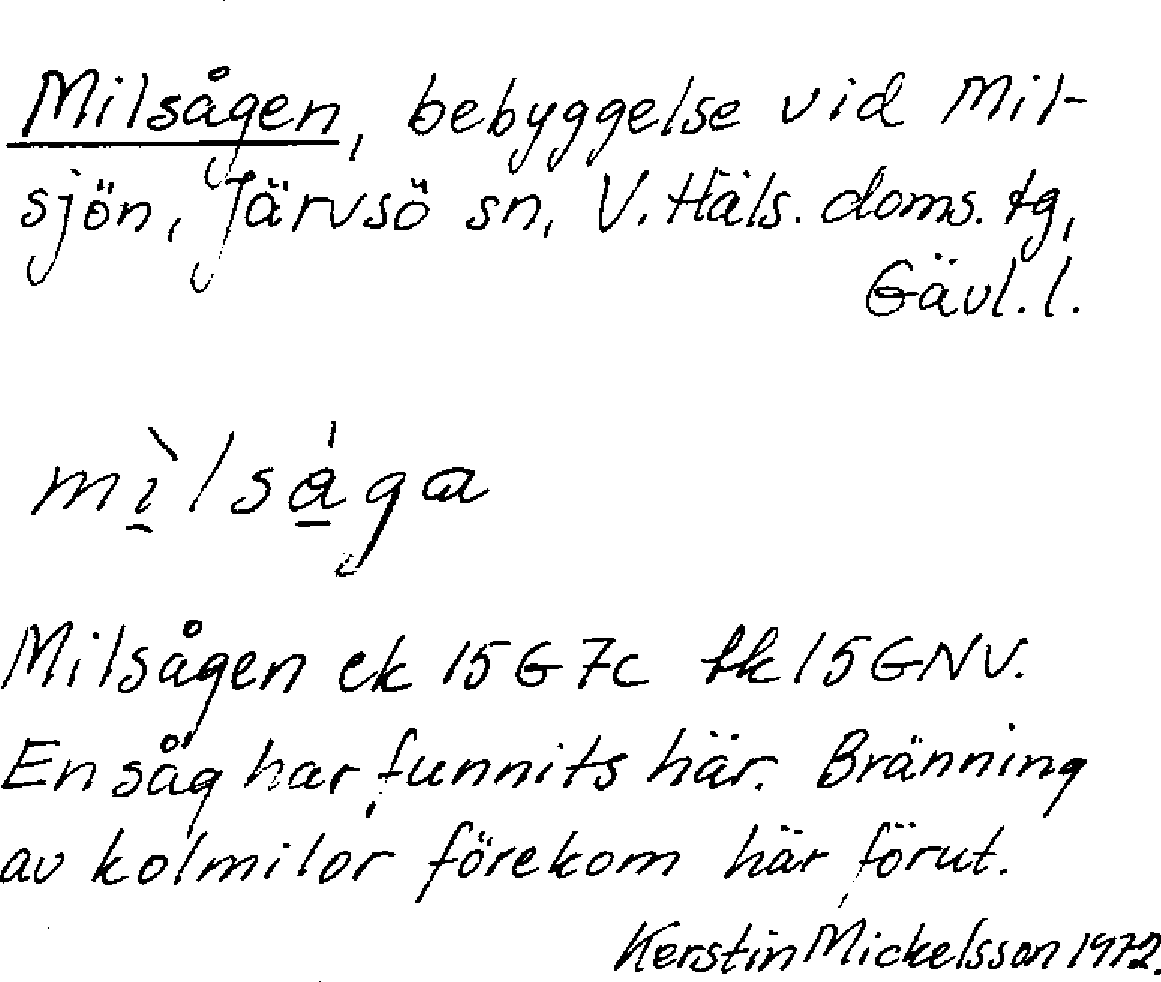 Milsågen, bebyggelse vid Mil-
sjön, Järvsö sn, V. Häls. doms. tg,
Gävl. l.
mì̠lsa̠̍ga
Milsågen ek 15G7c tk 15GNV.
En såg har funnits här. Bränning
av kolmilor förekom här förut.
Kerstin Mickelsson 1972.